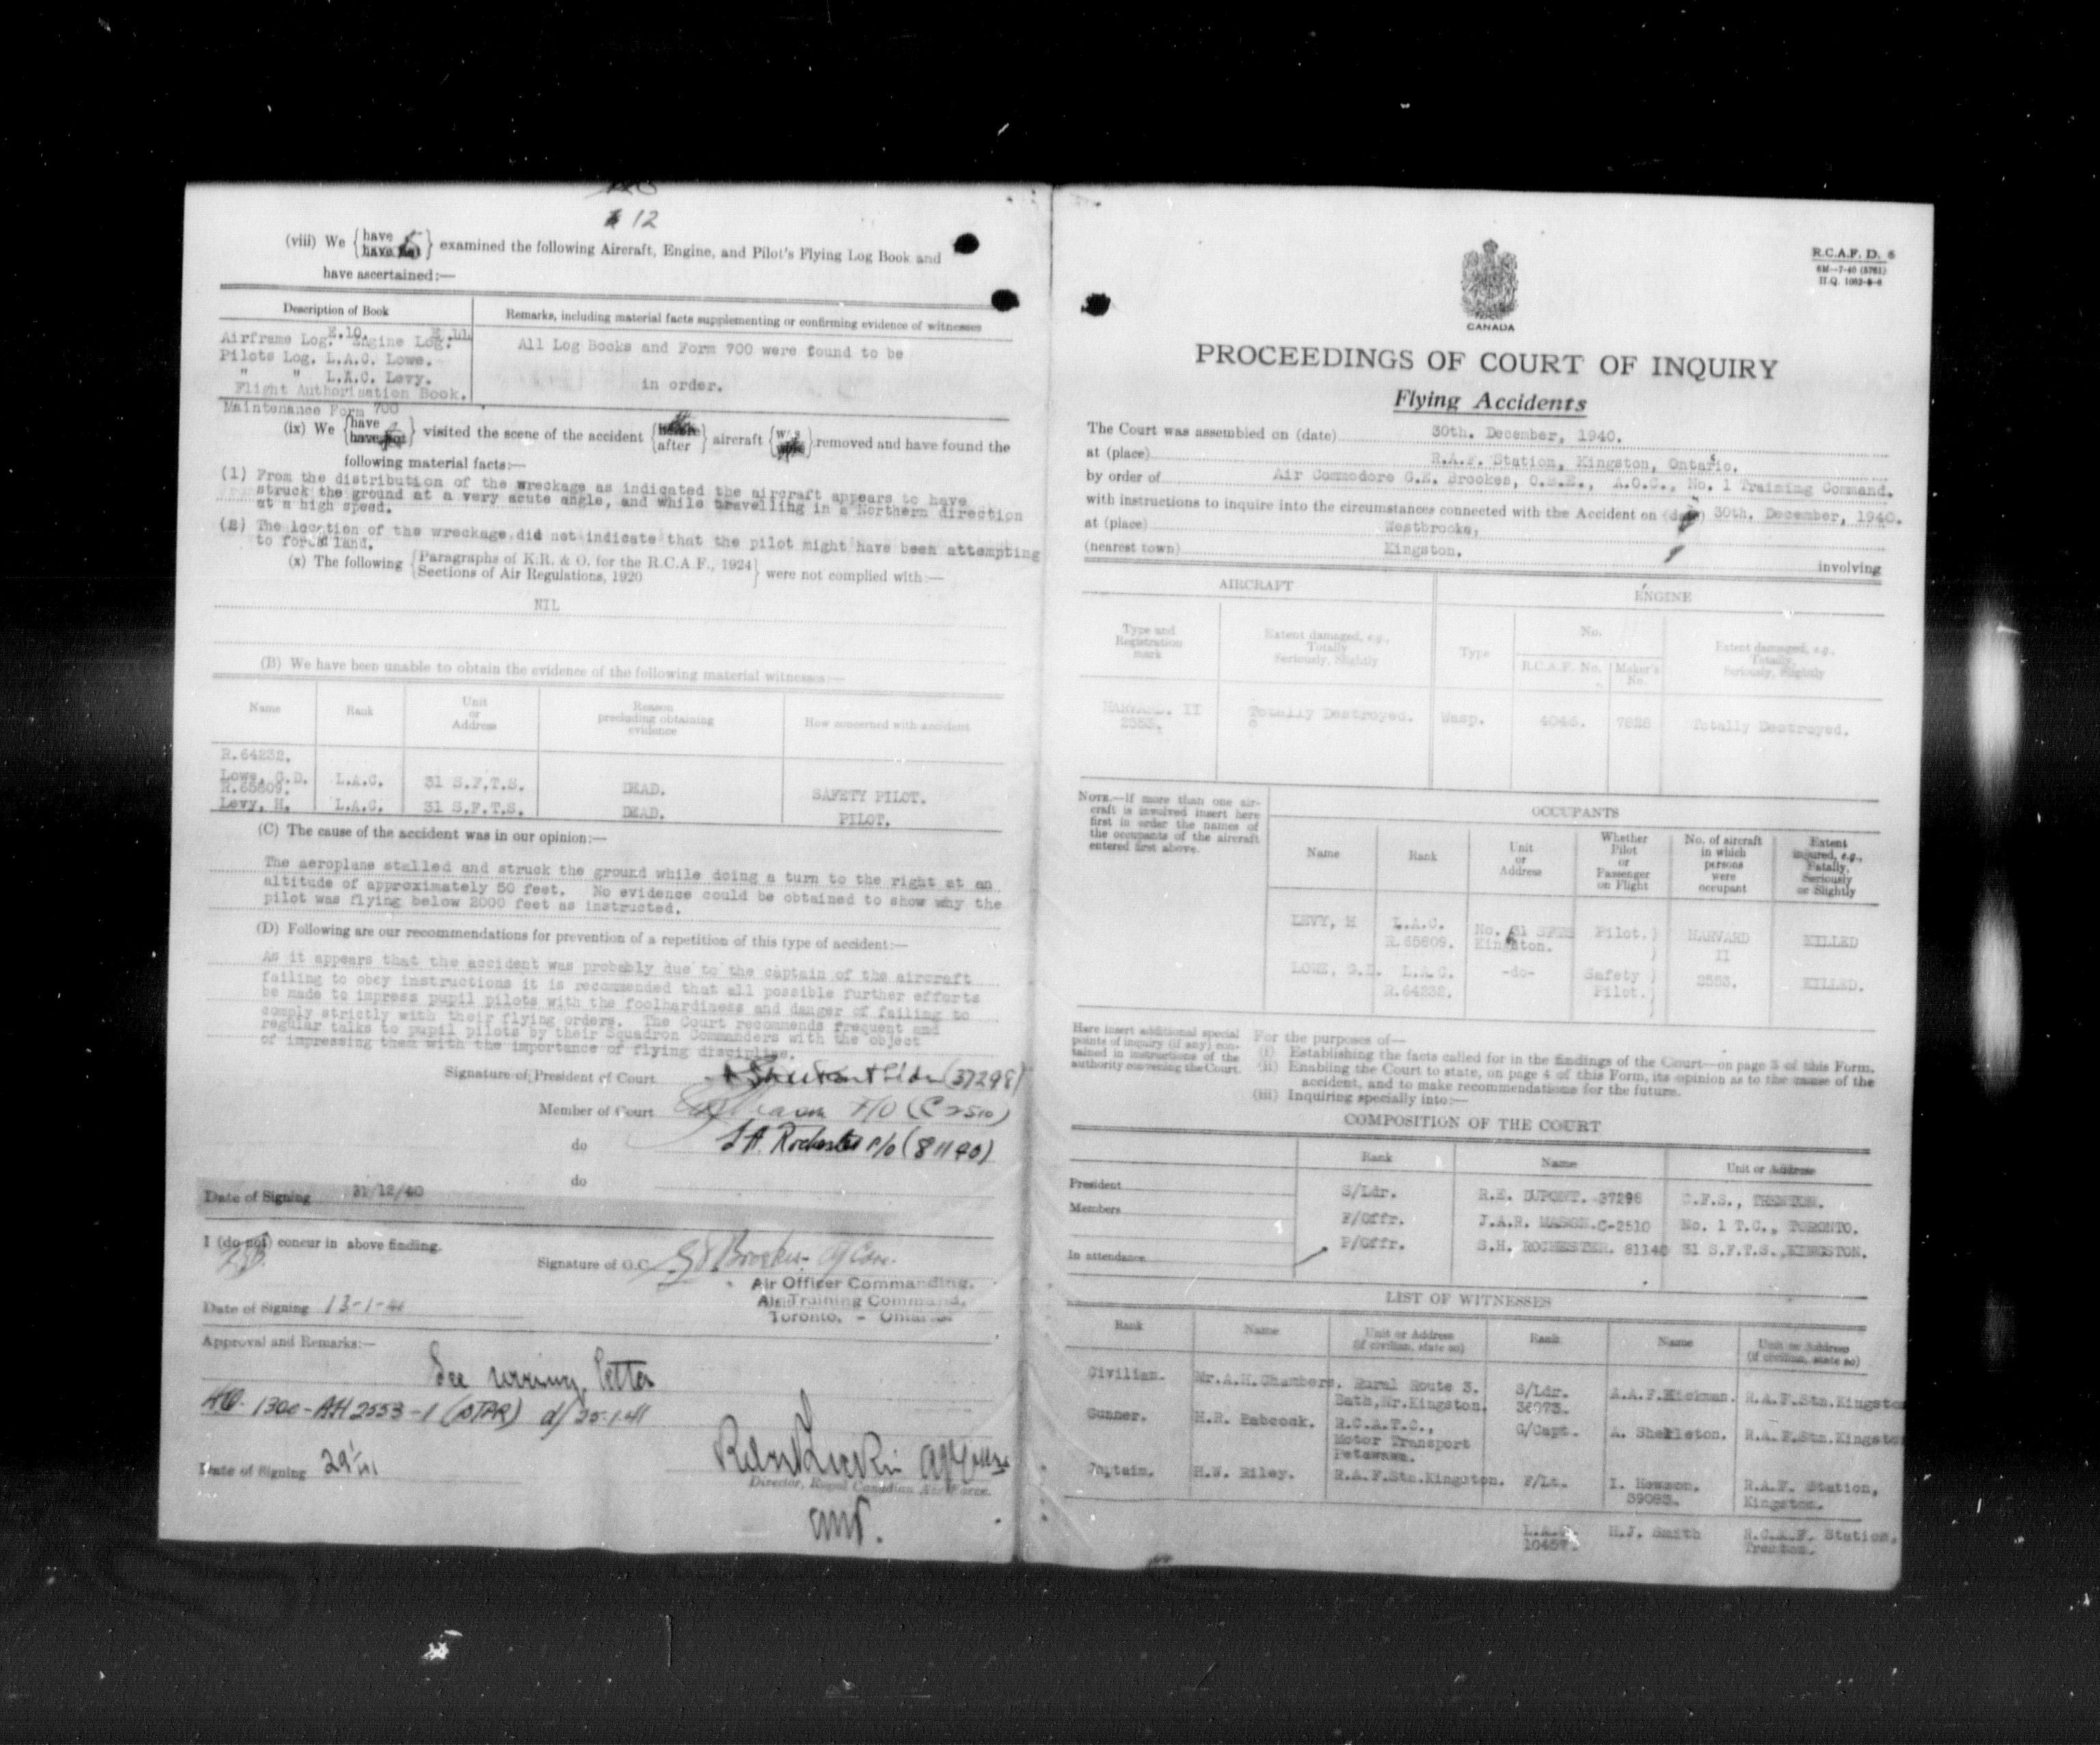 12
(viii) We {have / have not} examined the following Aircraft, Engine, and Pilot's Flying Log Book and
have ascertained:—
Description of Book
Remarks, including material facts supplementing or confirming evidence of witnesses
Airframe Log. E.10. Engine Log.
Pilots Log. L.A.C. Lowe.
" " L.A.C. Levy.
Flight Authorisation Book.
Maintenance Form 700
All Log Books and Form 700 were found to be
in order.
(ix) We {have / have not} visited the scene of the accident {before / after} aircraft {was} removed and have found the
following material facts:—
(1) From the distribution of the wreckage as indicated the aircraft appears to have
struck the ground at a very acute angle, and while travelling in a Northern direction
at a high speed.
(2) The location of the wreckage did not indicate that the pilot might have been attempting
to forceland.
(x) The following {Paragraphs of K.R. & O. for the R.C.A.F., 1924 / Sections of Air Regulations, 1920} were not complied with:—
NIL
(B) We have been unable to obtain the evidence of the following material witnesses:—
Name Rank Unit or Address Reason precluding obtaining evidence How concerned with accident
R.64232.
Lowe, G.D. L.A.C. 31 S.F.T.S. DEAD. SAFETY PILOT.
R.65809.
Levy, H. L.A.C. 31 S.F.T.S. DEAD. PILOT.
(C) The cause of the accident was in our opinion:—
The aeroplane stalled and struck the ground while doing a turn to the right at an
altitude of approximately 50 feet. No evidence could be obtained to show why the
pilot was flying below 2000 feet as instructed.
(D) Following are our recommendations for prevention of a repetition of this type of accident:—
As it appears that the accident was probably due to the captain of the aircraft
failing to obey instructions it is recommended that all possible further efforts
be made to impress pupil pilots with the foolhardiness and danger of failing to
comply strictly with their flying orders. The Court recommends frequent and
regular talks to pupil pilots by their Squadron Commanders with the object
of impressing them with the importance of flying discipline.
Signature of President of Court (37298)
Member of Court F/O (C2510)
do S.H. Rochester P/O (81140)
do
Date of Signing 31/12/40
I (do not) concur in above finding.
Signature of O.C. G E Brookes A/Com.
Air Officer Commanding,
Air Training Command,
Toronto, - Ontario
Date of Signing 13-1-41
Approval and Remarks:—
See letter
HQ. 1300-AH2553-1 d/25-1-41
Date of Signing 29/1/41
Director, Royal Canadian Air Force.
R.C.A.F. D. 6
6M-7-40 (5761)
H.Q. 1062-8-6
CANADA
PROCEEDINGS OF COURT OF INQUIRY
Flying Accidents
The Court was assembled on (date) 30th. December, 1940.
at (place) R.A.F. Station, Kingston, Ontario.
by order of Air Commodore G.E. Brookes, O.B.E., A.O.C., No. 1 Training Command.
with instructions to inquire into the circumstances connected with the Accident on (date) 30th. December, 1940.
at (place) Westbrooke,
(nearest town) Kingston. involving
AIRCRAFT ENGINE
Type and Registration mark
Extent damaged, e.g., Totally Seriously, Slightly
Type
No.
R.C.A.F. No. Maker's No.
Extent damaged, e.g., Totally, Seriously, Slightly
HARVARD. II 2553. Totally Destroyed. Wasp. 4046. 7828 Totally Destroyed.
NOTE.—If more than one aircraft
is involved insert here
first in order the names of
the occupants of the aircraft
entered first above.
OCCUPANTS
Name Rank Unit or Address Whether Pilot or Passenger on Flight No. of aircraft in which persons were occupant Extent injured, e.g., Fatally, Seriously or Slightly
LEVY, H L.A.C. R.65809. No. 31 SFTS Kingston. Pilot.) HARVARD II KILLED
LOWE, G.D. L.A.C. R.64232. -do- Safety Pilot.) 2553. KILLED.
Here insert additional special
points of inquiry (if any) contained
in instructions of the
authority convening the Court.
For the purposes of—
(i) Establishing the facts called for in the findings of the Court—on page 3 of this Form.
(ii) Enabling the Court to state, on page 4 of this Form, its opinion as to the cause of the
accident, and to make recommendations for the future.
(iii) Inquiring specially into:—
COMPOSITION OF THE COURT
Rank Name Unit or Address
President S/Ldr. R.E. DUPONT. 37298 C.F.S., TRENTON.
Members F/Offr. J.A.R. MASON. C-2510 No. 1 T.C., TORONTO.
P/Offr. S.H. ROCHESTER. 81140 31 S.F.T.S., KINGSTON.
In attendance
LIST OF WITNESSES
Rank Name Unit or Address (if civilian, state so) Rank Name Unit or Address (if civilian, state so)
Civilian. Mr.A.H.Chambers. Rural Route 3. Bath,Nr.Kingston. S/Ldr. A.A.F.Hickman. R.A.F.Stn.Kingston
Gunner. H.R. Babcock. R.C.A.T.C., Motor Transport Petawawa. G/Capt. A. Shekleton. R.A.F.Stn.Kingston
Captain. H.W. Riley. R.A.F.Stn.Kingston. F/Lt. I. Hewson. 39083. R.A.F. Station, Kingston.
H.J. Smith R.C.A.F. Station, Trenton.